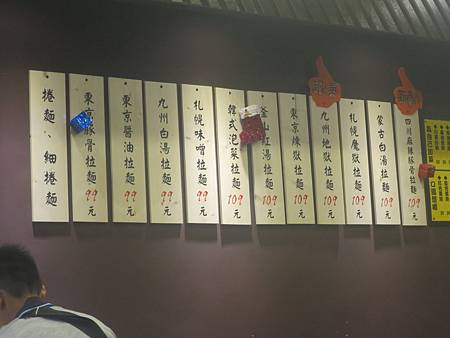 捲麵、細捲麵
東京豚骨拉麵99元
東京醬油拉麵99元
九州白湯拉麵99元
札幌味噌拉麵99元
韓式泡菜拉麵109元
釜山紅湯拉麵109元
東京煉獄拉麵109元
九州地獄拉麵109元
札幌魔獄拉麵109元
蒙古白湯拉麵109元
四川麻辣豚骨拉麵109元